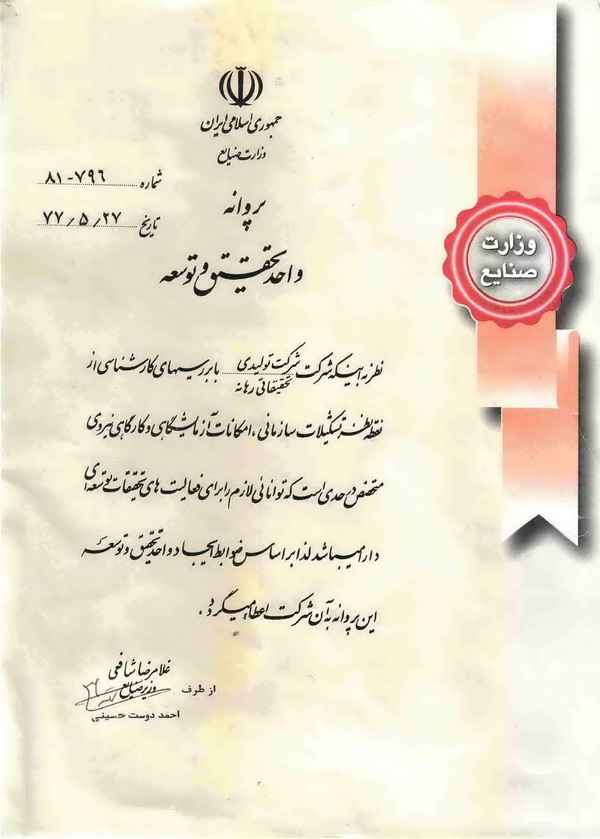 جمهوری اسلامی ایران
وزارت صنایع
شماره ۸۱-۷۹۶
تاریخ ۷۷/۵/۲۷
پروانه
واحد تحقیق و توسعه
وزارت
صنایع
نظر به اینکه شرکت شرکت تولیدی با بررسیهای کارشناسی از
تحقیقاتی رهانه
نقطه نظر تشکیلات سازمانی، امکانات آزمایشگاهی و کارگاهی نیروی
متخصص در حدی است که توانائی لازم را برای فعالیت های تحقیقات توسعه ای
دارا میباشد لذا بر اساس ضوابط ایجاد واحد تحقیق و توسعه
این پروانه به آن شرکت اعطا میگردد.
غلامرضا شافعی
وزیر صنایع
از طرف
احمد دوست حسینی